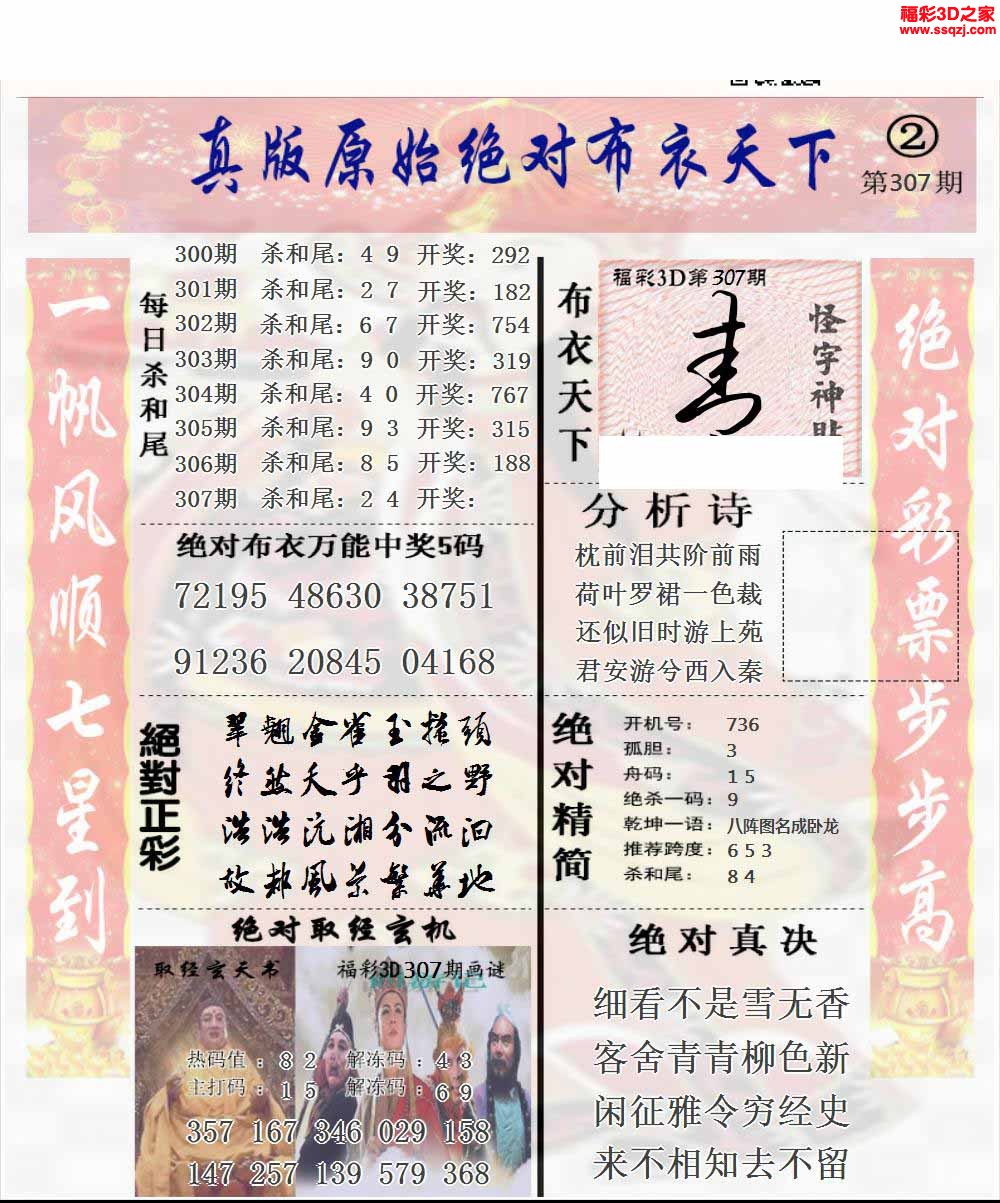 福彩3D之家
www.ssqzj.com
真版原始绝对布衣天下
②
第307期
一帆风顺七星到
每日杀和尾
300期 杀和尾: 4 9 开奖: 292
301期 杀和尾: 2 7 开奖: 182
302期 杀和尾: 6 7 开奖: 754
303期 杀和尾: 9 0 开奖: 319
304期 杀和尾: 4 0 开奖: 767
305期 杀和尾: 9 3 开奖: 315
306期 杀和尾: 8 5 开奖: 188
307期 杀和尾: 2 4 开奖:
绝对布衣万能中奖5码
72195 48630 38751
91236 20845 04168
絕對正彩
翠翘金雀玉搔頭
终然天乎羽之野
浩浩沅湘分流汩
故郡風景繁華地
绝对取经玄机
取经玄天书
福彩3D307期画谜
热码值:8 2 解冻码:4 3
主打码:1 5 解冻码:6 9
357 167 346 029 158
147 257 139 579 368
布衣天下
福彩3D第307期
怪字神
分析诗
枕前泪共阶前雨
荷叶罗裙一色裁
还似旧时游上苑
君安游兮西入秦
绝对精简
开机号: 736
孤胆: 3
舟码: 1 5
绝杀一码: 9
乾坤一语: 八阵图名成卧龙
推荐跨度: 6 5 3
杀和尾: 8 4
绝对真决
细看不是雪无香
客舍青青柳色新
闲征雅令穷经史
来不相知去不留
绝对彩票步步高